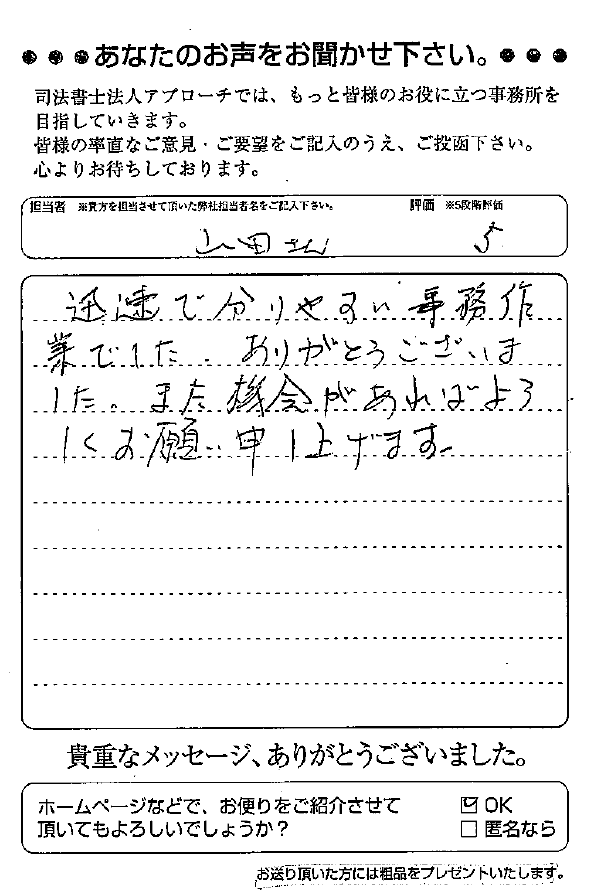 ●●●あなたのお声をお聞かせ下さい。●●●
司法書士法人アプローチでは、もっと皆様のお役に立つ事務所を
目指していきます。
皆様の率直なご意見・ご要望をご記入のうえ、ご投函下さい。
心よりお待ちしております。
担当者 ※貴方を担当させて頂いた弊社担当者名をご記入下さい。 評価 ※5段階評価
山田さん 5
迅速で分りやすい事務作
業でした。ありがとうございま
した。また機会があればよろ
しくお願い申し上げます。
貴重なメッセージ、ありがとうございました。
ホームページなどで、お便りをご紹介させて ☑ OK
頂いてもよろしいでしょうか？ □ 匿名なら
お送り頂いた方には粗品をプレゼントいたします。